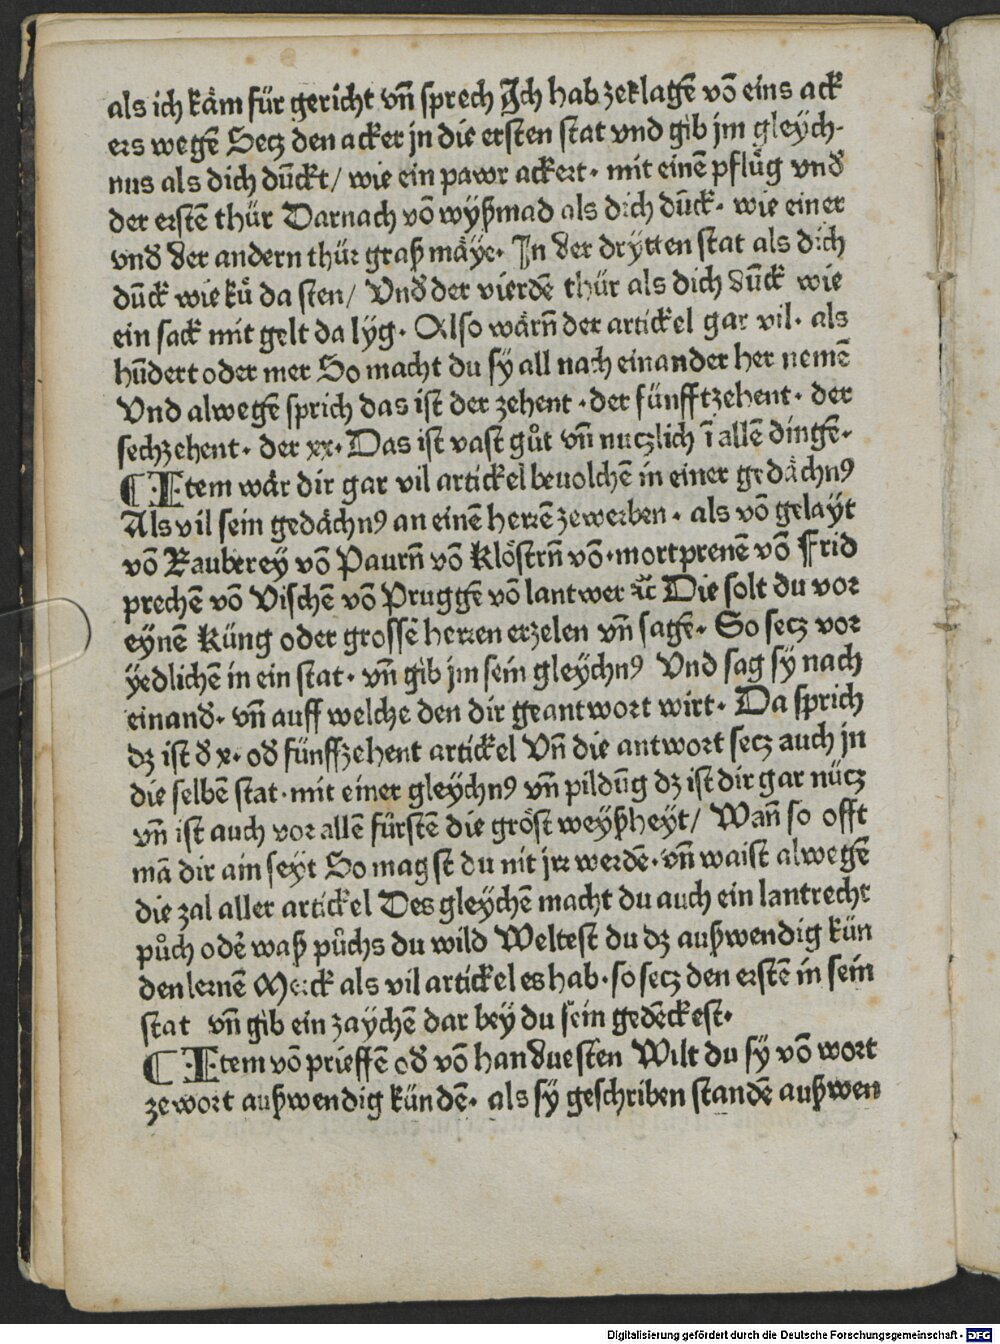 als ich kåm für gericht vn̄ sprech Ich hab zeklagē vō eins ack
ers wegē Secz den acker jn die ersten stat vnd gib jm gleych-
nus als dich dūckt/ wie ein pawr ackert· mit einē pflůg vnd̕
der erstē thür Darnach vō wyßmad als dich dūck· wie einer
vnd̕ der andern thür graß mäye· In der drytten stat als dich
dūck wie kü̊ da sten/ Vnd̕ der vierdē thür als dich dūck wie
ein sack mit gelt da lyg· Also wårn̄ der artickel gar vil· als
hūdert oder mer So macht du sy all nach einander her nemē
Vnd alwegē sprich das ist der zehent·der fünfftzehent· der
sechzehent· der xx· Das ist vast gůt vn̄ nuczlich ī allē dingē·
¶ Item wår dir gar vil artickel beuolchē in einer gedåchnꝰ
Als vil sein gedåchnꝰ an einē herrē zewerben· als vō gelayt
vō Rauberey vō Paurn̄ vō Klöstrn̄ vō·mortprenē vō Frid
prechē vō Vischē vō Pruggē vō lantwer ꝛc̄ Die solt du vor
eynē Küng oder grossē herren erzelen vn̄ sagē· So secz vor
ÿedlichē in ein stat· vn̄ gib jm sein gleychnꝰ Vnd sag sy nach
einand̕· vn̄ auff welche den dir geantwort wirt· Da sprich
dz ist d̕ x· od̕ fünffzehent artickel Vn̄ die antwort secz auch jn
die selbē stat·mit einer gleychnꝰ vn̄ pildūg dz ist dir gar nücz
vn̄ ist auch vor allē fürstē die gröst weyßheyt/ Wan̄ so offt
mā dir ain seyt So magst du nit jrr werdē·vn̄ waist alwegē
die zal aller artickel Des gleychē macht du auch ein lantrecht
půch odē waß půchs du wild Weltest du dz außwendig kün
den lernē Merck als vil artickel es hab·so secz den erstē in sein
stat vn̄ gib ein zaychē dar bey du sein gedēckest·
¶ Item vō prieffē od̕ vō handuesten Wilt du sy vō wort
zewort außwendig kündē· als sy geschriben standē außwen
Digitalisierung gefördert durch die Deutsche Forschungsgemeinschaft - DFG